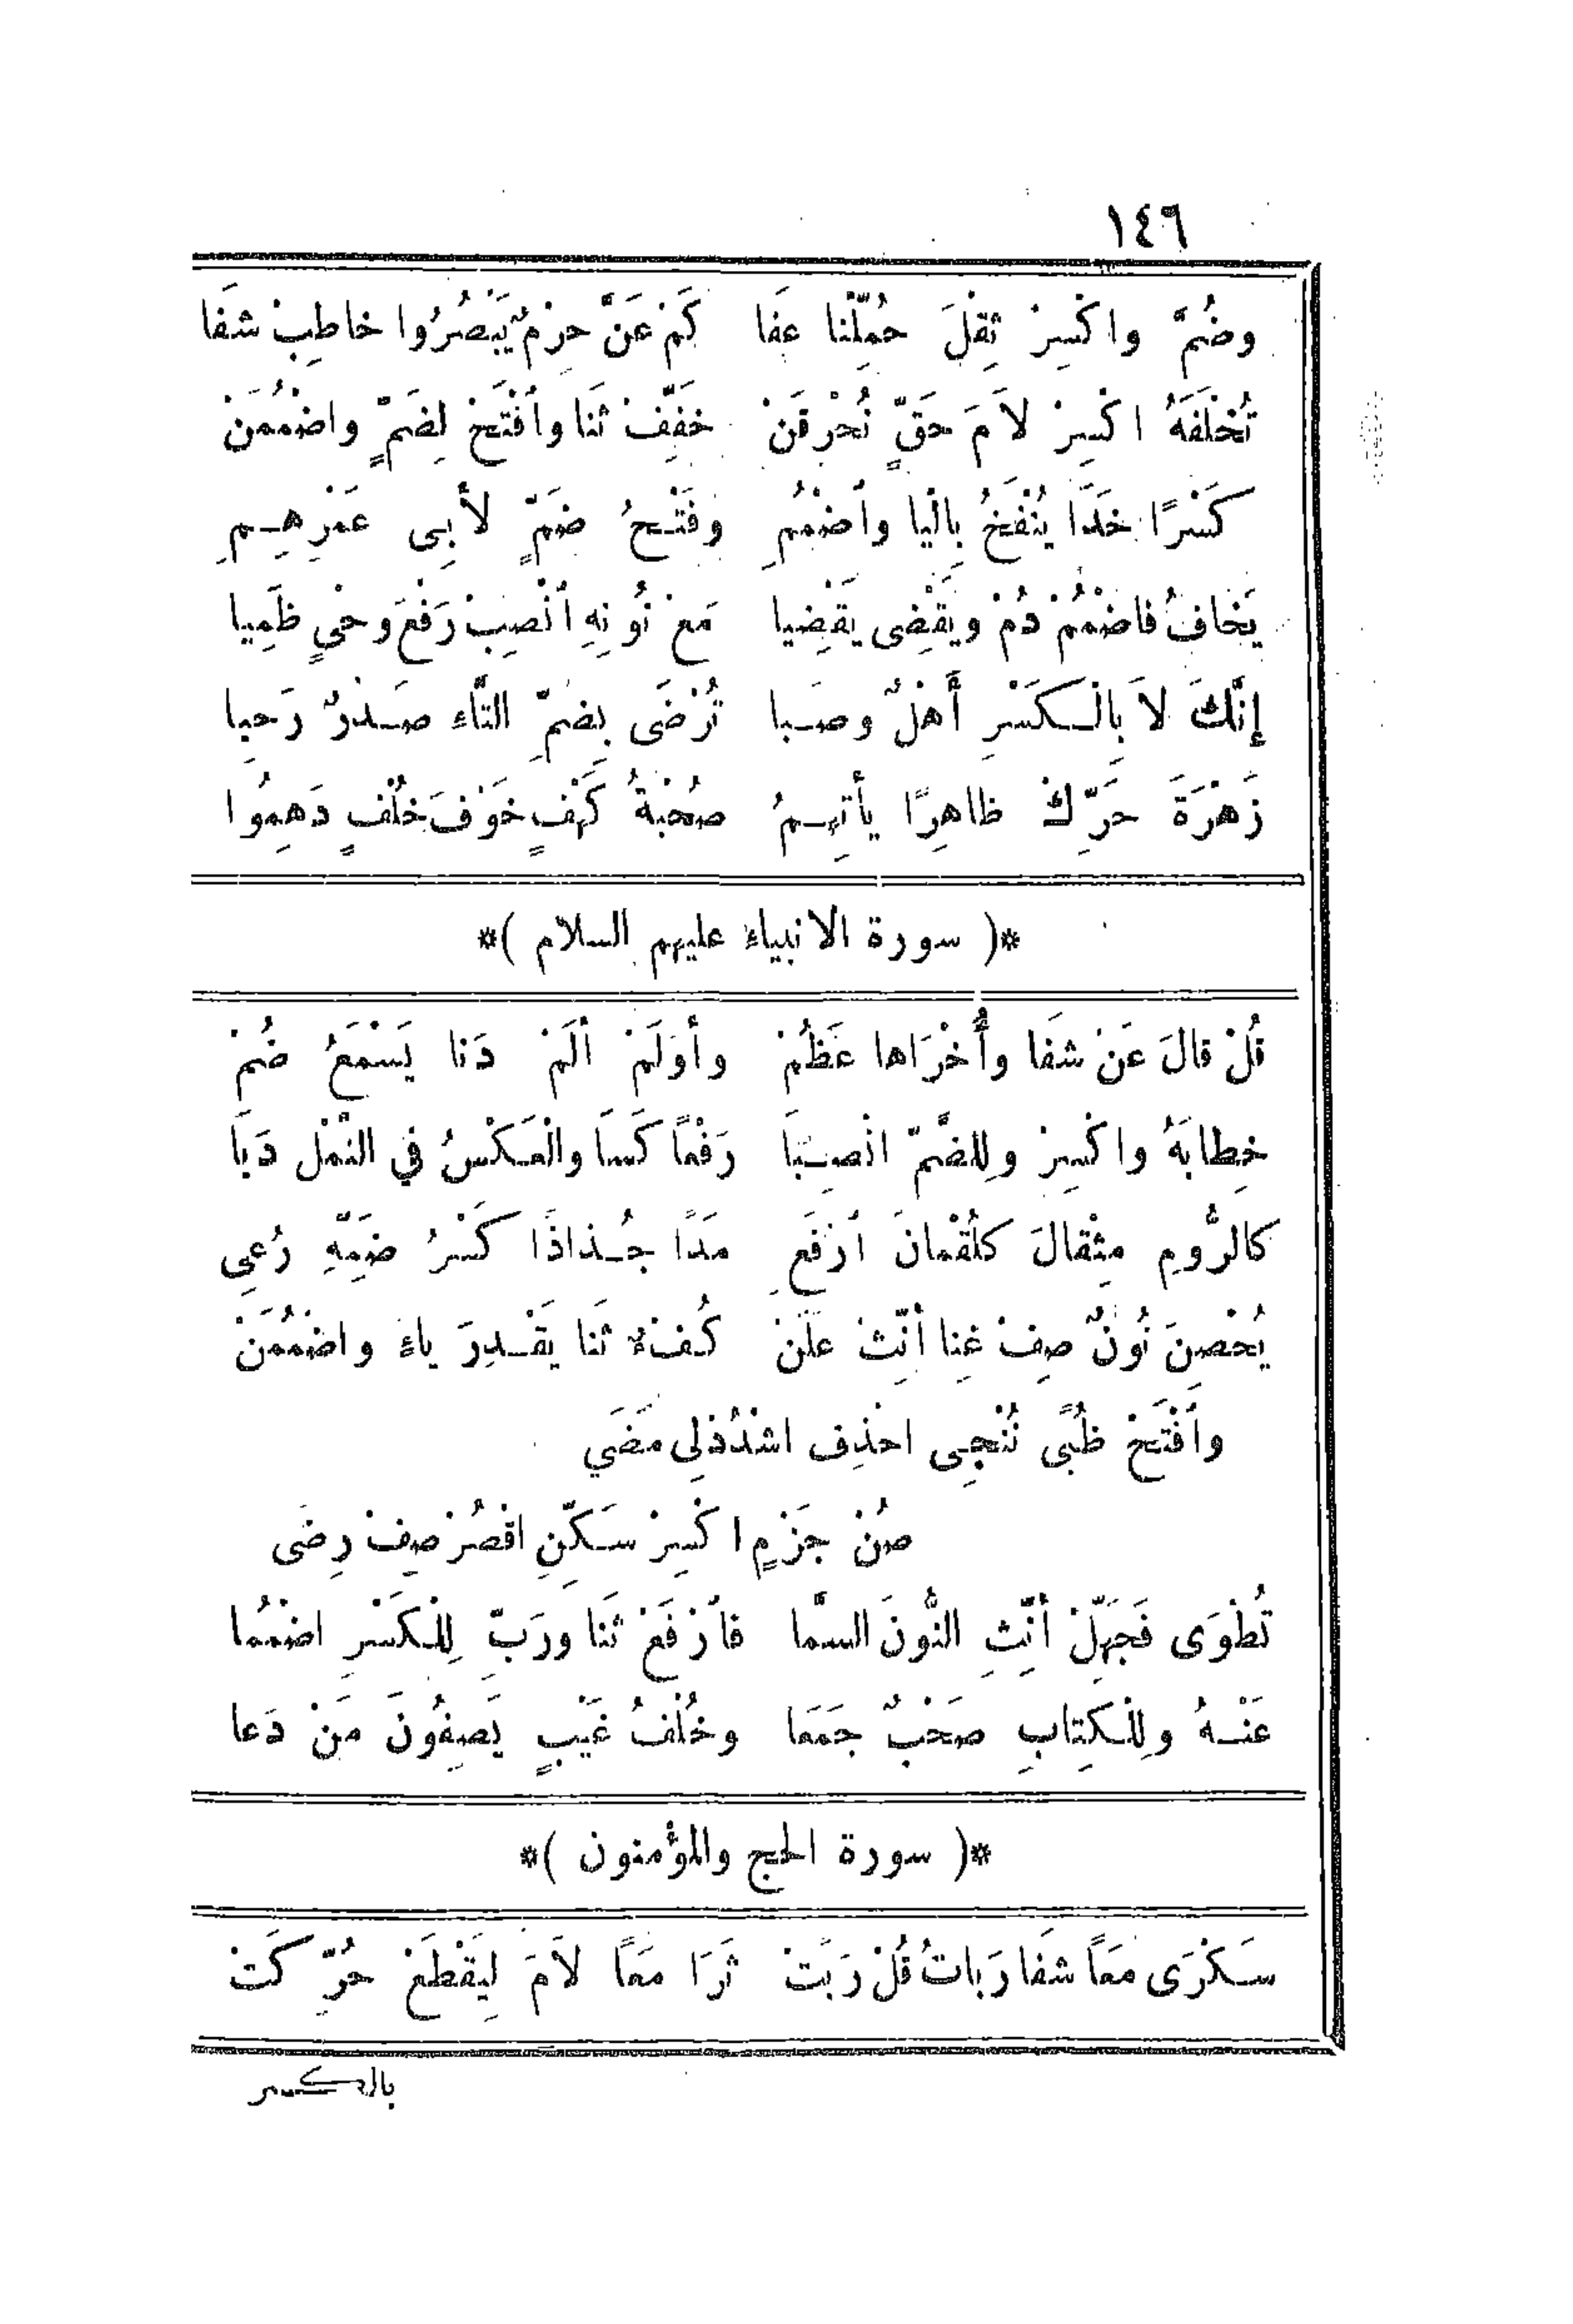 ١٤٦
وضُمَّ واكْسِرْ ثِقْلَ حُمِّلْنا عَفَا كَمْ عَنَّ حِرْمٌ يَبْصُرُوا خاطِبْ شَفَا
تُخْلَفَهُ اكْسِرْ لاَمَ حَقٍّ نُحْرِقَنْ خَفِّفْ ثَنا وافْتَحْ لِضَمٍّ واضْمُمَنْ
كَسْرًا خَلاَ يُنْفَخُ بِالْيا واضْمُمِ وفَتْحُ ضَمٍّ لأَبِى عَمْرِهِمِ
يَخَافُ فاضْمُمْ دُمْ ويَقْضِى يَقْضِيا مَعْ نُونِهِ انْصِبْ رَفْعَ وحْىٍ ظَمِيا
إنَّكَ لاَ بِالْكَسْرِ أَهْلٌ وصَبا تُرْضَى بِضَمِّ التَّاءِ صَدْرٌ رَحِبا
زَهْرَةَ حَرِّكْ ظاهِرًا يأتِهِمُ صُحْبَةُ كَهْفٍ خَوْفَ خُلْفٍ دَهِمُوا
*( سورة الانبياء عليهم السلام )*
قُلْ قالَ عَنْ شَفَا وأُخْرَاها عَظُمْ وأوَلَمْ ألَمْ دَنا يَسْمَعُ ضُمْ
خِطابَهُ واكْسِرْ ولِلضَّمِّ انْصِبَا رَفْعًا كَسَا والْعَكْسُ فِي النَّمْلِ دَبَا
كالرُّومِ مِثْقالَ كَلُقْمانَ ارْفَعِ مَدًا جُذاذًا كَسْرُ ضَمِّهِ رُعِى
يُحْصِنَ نُونٌ صِفْ غِنا أنِّثْ عَلَنْ كُفْءٌ ثَنا يَقْدِرَ ياءٌ واضْمُمَنْ
وافْتَحْ ظُبًى نُنْجِى احْذِفِ اشْدُدْلِى مَضَى
صُنْ حِرْمٌ اكْسِرْ سَكِّنِ اقْصُرْ صِفْ رِضَى
تُطْوَى فَجَهِّلْ أنِّثِ النُّونَ السَّما فارْفَعْ ثَنَا ورَبِّ لِلْكَسْرِ اضْمُما
عَنْهُ ولِلْكِتابِ صَحْبٌ جَمَعَا وخُلْفُ غَيْبٍ يَصِفُونَ مَنْ دَعا
*( سورة الحج والمؤمنون )*
سَكْرَى مَعًا شَفَا رَبَاتْ قُلْ رَبَتْ ثَرَا مَعًا لاَمَ لِيَقْطَعْ حُرِّكَتْ
بالكسر